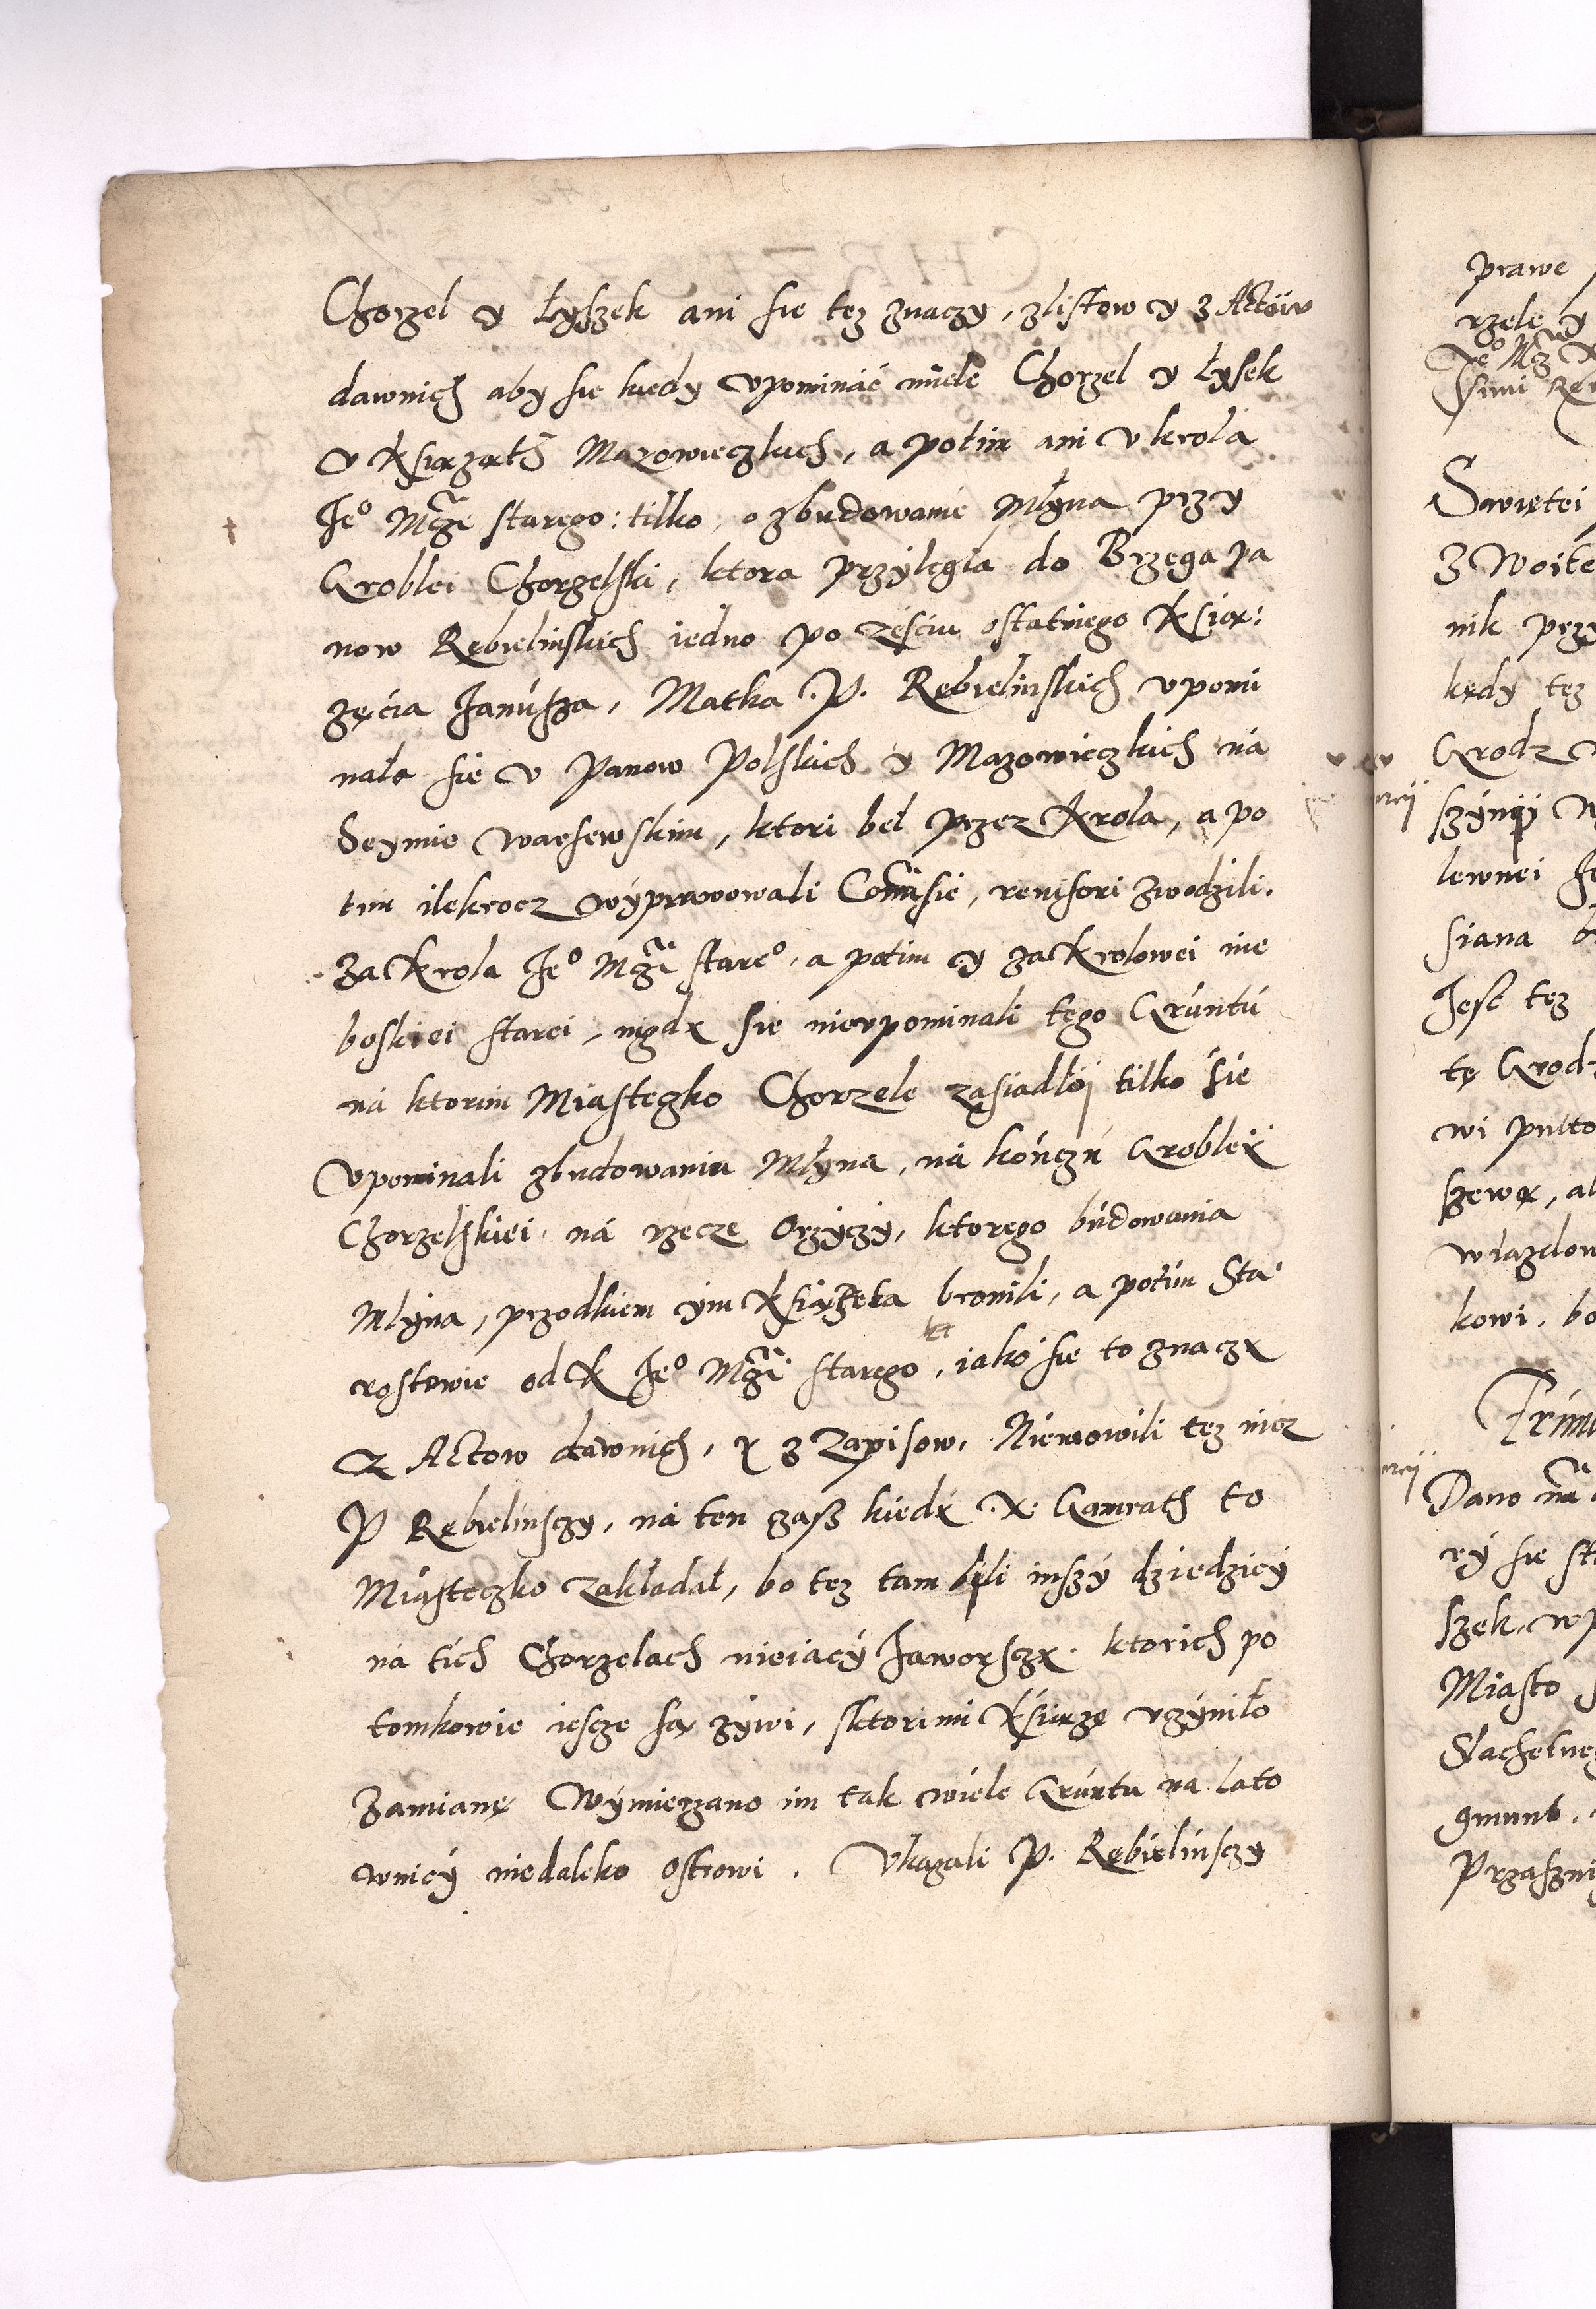 Chorzel y Łyszek ani sie tez znaczy, zlistow y z Actow
dawnich aby sie kiedy vpominác miele Chorzel y Łysek
v Ksiązath Mazowieczkich, a potim ani v krola
Je° Mczi starego: tilko, o zbudowanie Młyna przy
Groblei Chorzelski, ktora przylegla do Brzega pa
now Rębielinskich iedno po ześciu ostatniego Ksią:
zęcia Janusza, Matka .P. Rębielinskich vpomi
nała sie v Panow Polskich y Mazowieczkich ná
Seymie Warsewskim, ktori beł przez Krola, a po
tim ilekrocz wyprawowali Comisie, reuisori zwodzili.
Za Krola Je° Mczi stare°, a potim y za Krolowei nie
boskiei starei, nigdy sie nievpominali tego Gruntu
ná ktorim Miasteczko Chorzele zasiadło, tilko sie
vpominali zbudowania Młyna, ná kończu Groblei
Chorzelskiei, ná rzecze Orzyczy, ktorego budowania
Mlyna, przodkiem ym Ksiązeta bronili, a potim Sta
rostowie od K Je° Mczi starego, iako sie to znaczy
Z Actow dawnich, y z Zapisow, Niemowili tez nicz
P Rębielinsczy, ná ten czasz kiedy .X. Gamrath to
Miasteczko zakładał, bo tez tam byli inszy dziedzicy
ná tich Chorzelach nieiacy Jaworsczy. ktorich po
tomkowie iescze są zywi, sktorimi Ksiązę vczyniło
Zamianę Wymierzano im tak wiele Gruntu na lato
wnicy niedaleko Ostrowi. Vkazali P. Rębielinsczy
prawe
rzele y
Je° Mcz
Swiętei
Z Woite
nik przy
kędy tez
Grodz
lewnei
siana
Jest tez
tę Grodz
wi pulto
szewę, al
wiazdow
kowi, bo
Primu
Dano
ry sie st
szek, wp
Miasto
Slachetne
gmunt.
Przaszni